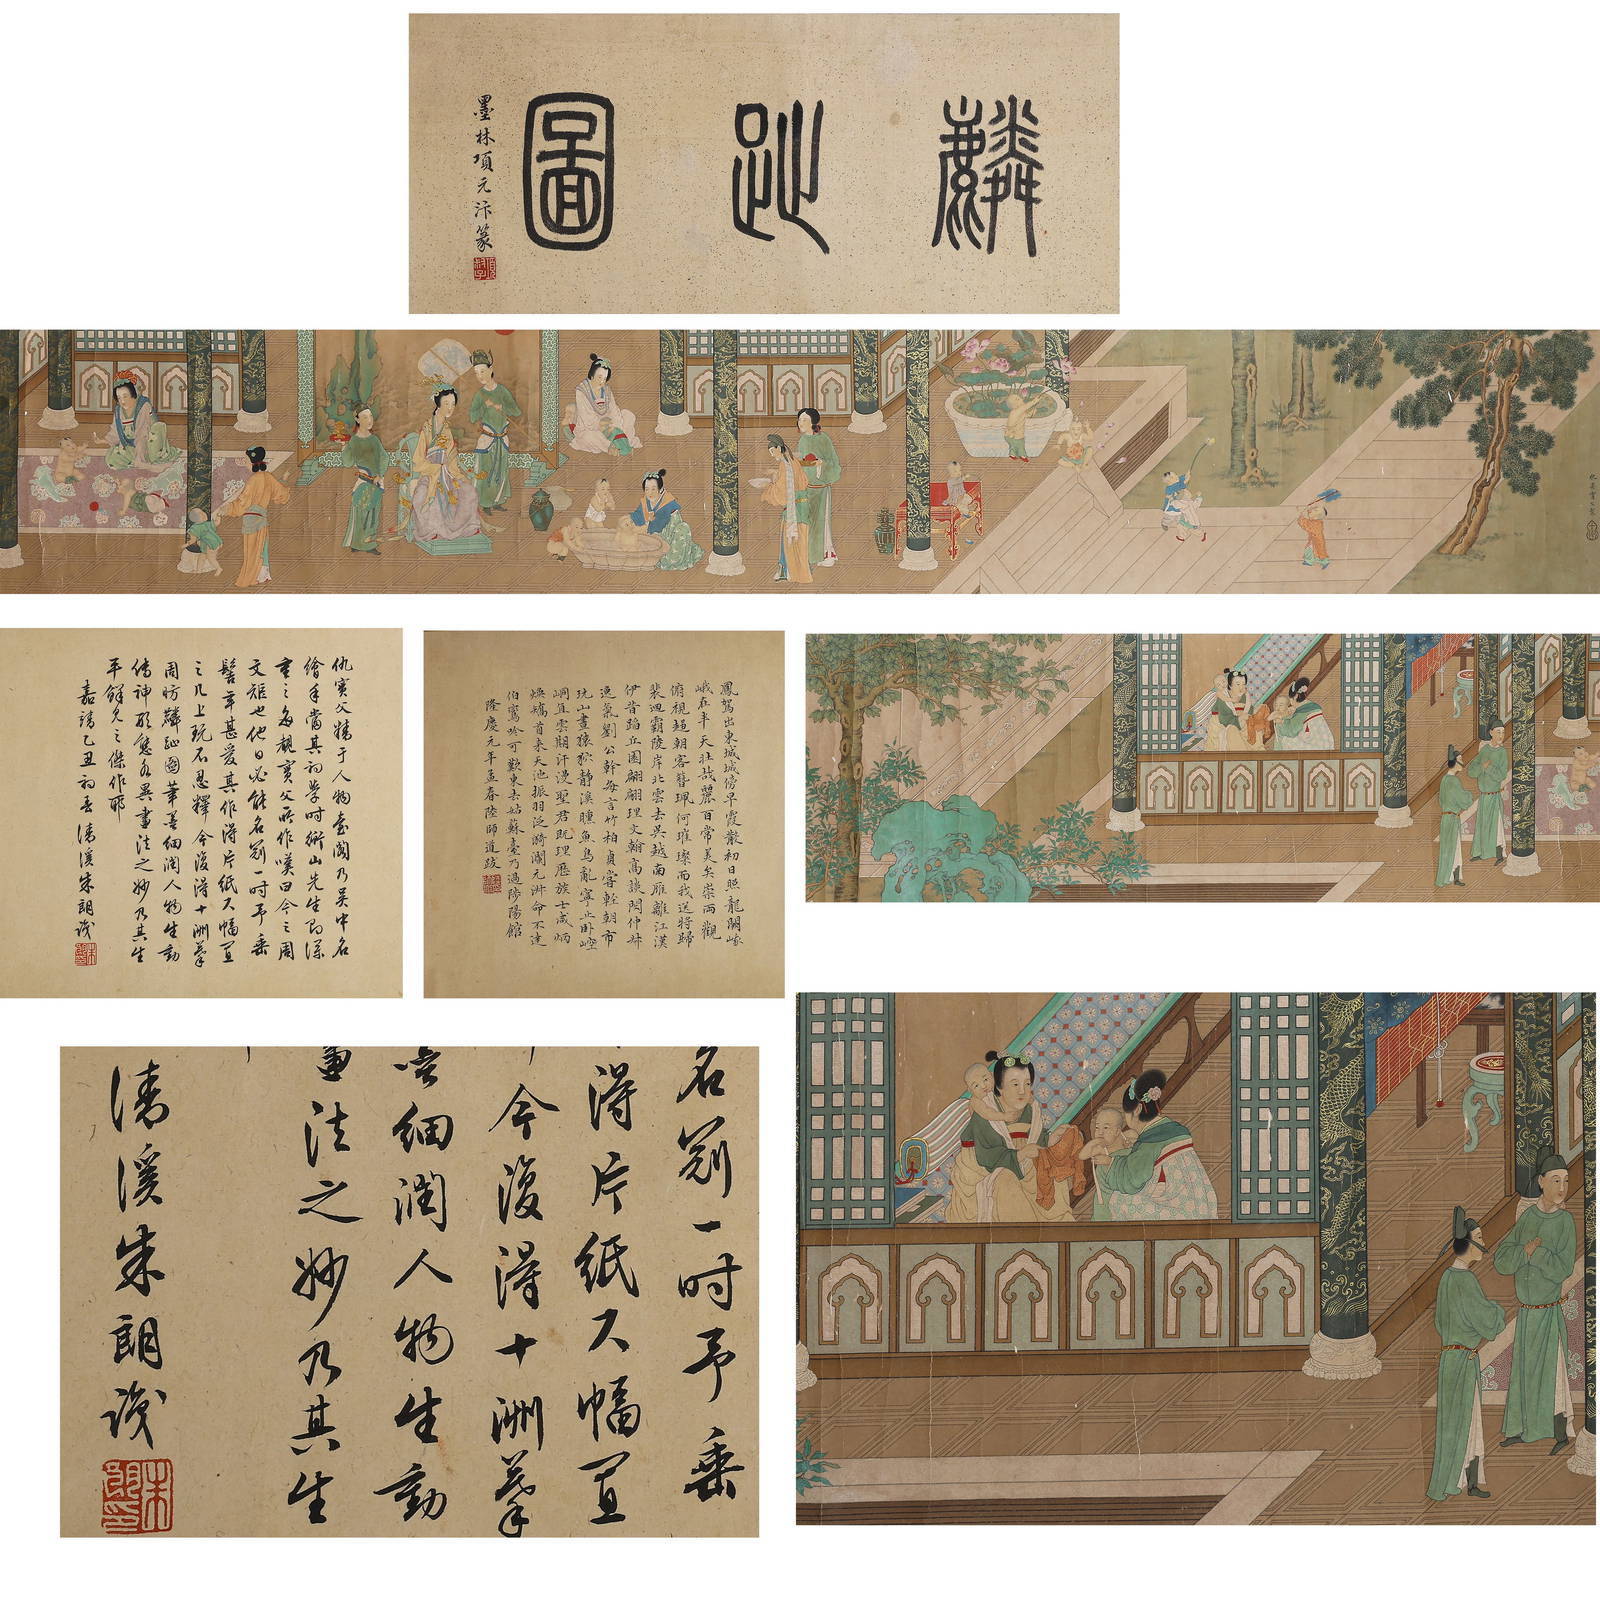 麟趾圖
墨林項元汴篆
仇英實父製
仇實父精于人物臺閣乃吳中名
繪手當其初學時衡山先生即深
重之每覩實父所作嘆曰今之周
文矩也他日必能名冠一時予垂
髫年甚愛其作得片紙尺幅置
之几上玩不忍釋今復得十洲摹
周昉麟趾圖筆墨細潤人物生動
傳神形態各異畫法之妙乃其生
平鮮見之傑作耶
嘉靖乙丑初春清溪朱朗識
鳳駕出東城城傍早霞散初日照龍闕峨
峨在半天壯哉麗百常美矣崇兩觀
俯視趨朝客簪珮何璀璨而我送將歸
裴迴霸陵岸北雲去吳越南雁離江漢
伊昔蹈丘園翩翩理文翰高談閔仲叔
逸氣劉公幹每言竹柏貞嘗輕朝市
玩山晝猿狖靜溪曛魚鳥亂寧止臥崆
峒且雲期汗漫聖君既理歷族士咸炳
煥矯首来天池振羽泛漪瀾元洲命不達
伯鸞吟可歎東去姑蘇臺乃過陟陽館
隆慶元年孟春陸師道跋
名冠一時予垂
得片紙尺幅置
今復得十洲摹
墨細潤人物生動
畫法之妙乃其生
清溪朱朗識
朱朗印